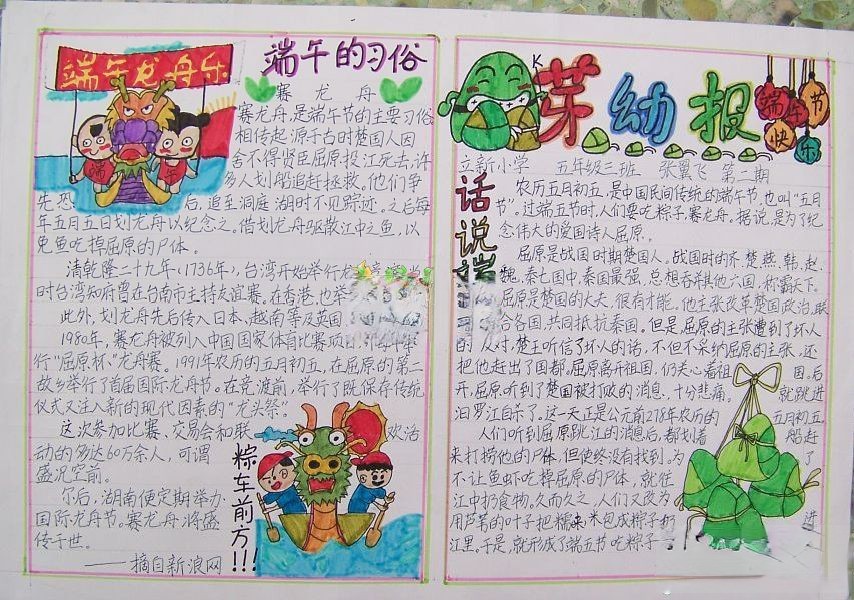 端午龙舟乐
端午的习俗
赛龙舟
赛龙舟,是端午节的主要习俗
相传起源于古时楚国人因
舍不得贤臣屈原投江死去,许
多人划船追赶拯救。他们争
先恐后,追至洞庭湖时不见踪迹。之后每
年五月五日划龙舟以纪念之。借划龙舟驱散江中之鱼,以
免鱼吃掉屈原的尸体。
清乾隆二十九年(1736年),台湾开始举行龙
时台湾知府曾在台南市主持友谊赛。在香港,也举
此外,划龙舟先后传入日本、越南等及英国
1980年,赛龙舟被列入中国国家体育比赛项目
行“屈原杯”龙舟赛。1991年农历的五月初五,在屈原的第二
故乡举行了首届国际龙舟节。在竞渡前,举行了既保存传统
仪式又注入新的现代因素的“龙头祭。
这次参加比赛、交易会和联欢活
动的多达60万余人,可谓
盛况空前。
尔后,湖南便定期举办
国际龙舟节。赛龙舟将盛
传于世。
——摘自新浪网
粽车前方!!!
端
午
K
芽幼报
端午节
快乐
立新小学 五年级三班 张翼飞 第二期
话说端
农历五月初五,是中国民间传统的端午节,也叫“五月
节”。过端五节时,人们要吃粽子,赛龙舟。据说,是为了纪
念伟大的爱国诗人屈原。
屈原是战国时期楚国人。战国时的齐、楚、燕、韩、赵、
魏、秦七国中,秦国最强,总想吞并其他六国,称霸天下。
屈原是楚国的大夫,很有才能。他主张改革楚国政治,联
合各国,共同抵抗秦国。但是,屈原的主张遭到了坏人
的反对,楚王听信了坏人的话,不但不采纳屈原的主张,还
把他赶出了国都。屈原离开祖国,仍关心着祖国。后
开,屈原听到了楚国被打败的消息,十分悲痛。就跳进
汨罗江自杀了。这一天正是公元前278年农历的五月初五。
人们听到屈原跳江的消息后,都划着船赶了
来打捞他的尸体,但使终没有找到。为了
不让鱼虾吃掉屈原的尸体,就往
江中扔食物。久而久之,人们又改为
用芦苇的叶子把糯米包成粽子扔进
江里。于是,就形成了端五节吃粽子